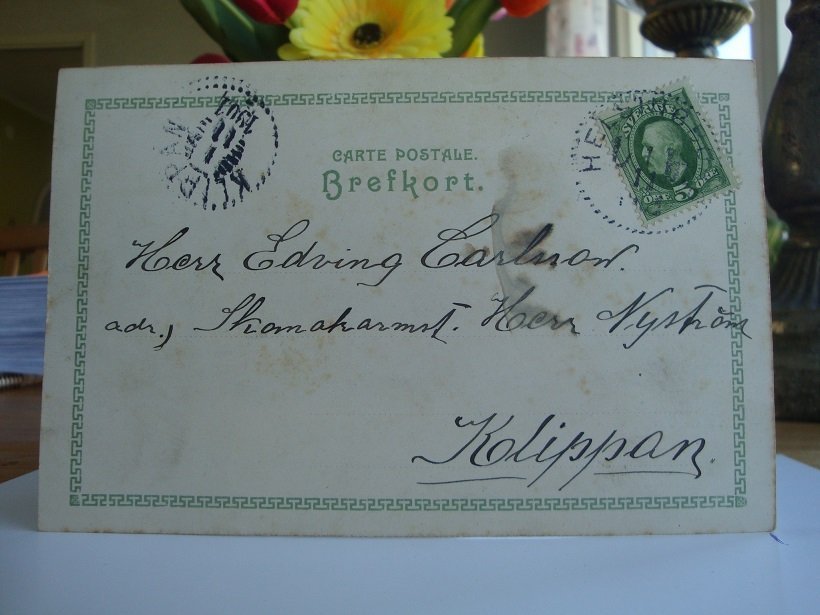 KLIPPAN
11
CARTE POSTALE.
Brefkort.
SVERIGE
5
ÖRE
Herr Edving Carlson.
adr., Skomakarmst. Herr Nyström
Klippan.